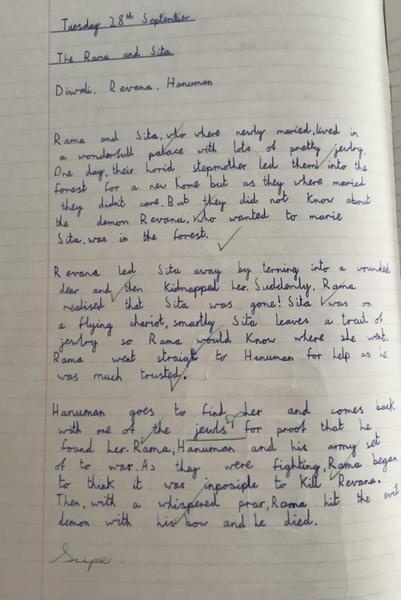 Tuesday 28th September
The Rama and Sita
Diwali, Revana, Hanuman
Rama and Sita, who where newly maried, lived in
a wonderfull palace with lots of pretty jewlry.
One day, their horid stepmother led them into the
forest for a new home but as they where maried
they didnt care. But they did not know about
the demon Revana, who wanted to marie
Sita, was in the forest.
Revana led Sita away by terning into a wounded
dear and then kidnapped her. Suddenly, Rama
realised that Sita was gone! Sita was on
a flying chariot, smartly Sita leaves a trail of
jewlry so Rama would know where she went.
Rama went straigt to Hanuman for help as he
was much trusted.
Hanuman goes to find her and comes back
with one of the jewls sp for proof that he
found her. Rama, Hanuman and his army set
of to war. As they were fighting, Rama began
to think it was inposiple to kill Revana.
Then, with a whispered prar, Rama hit the evil
demon with his bow and he died.